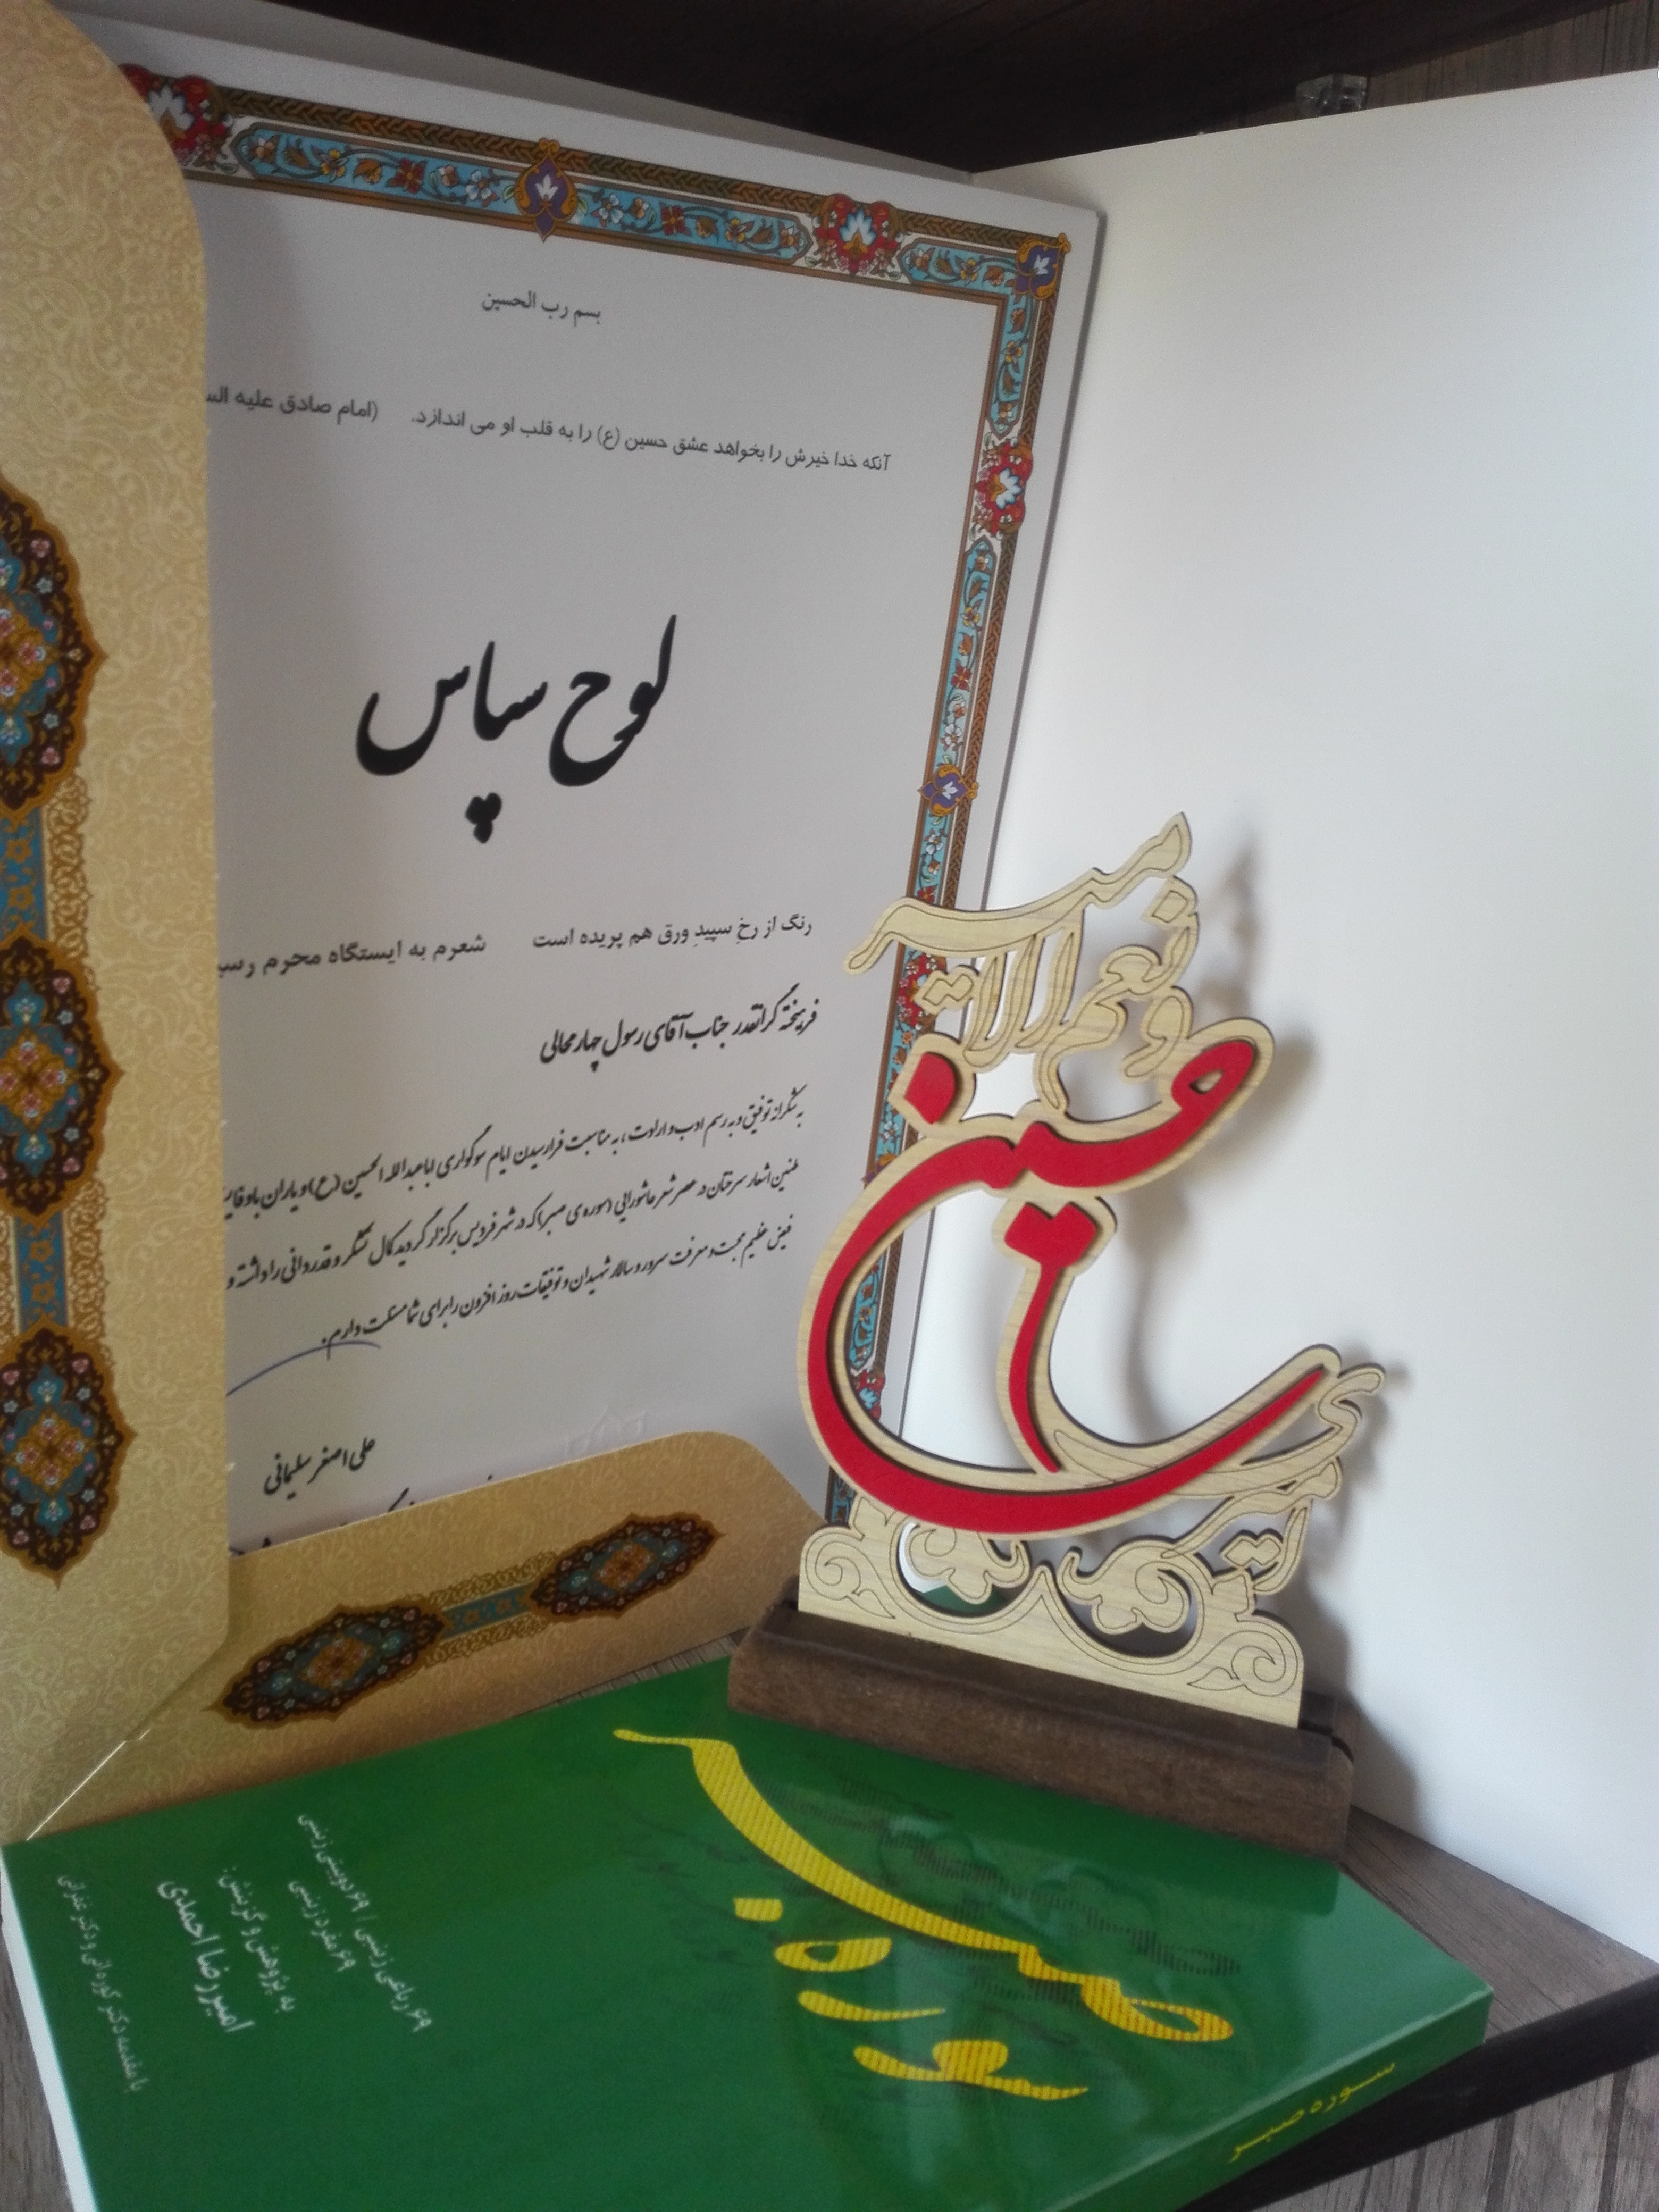 بسم رب الحسین
آنکه خدا خیرش را بخواهد عشق حسین (ع) را به قلب او می اندازد. (امام صادق علیه
لوح سپاس
رنگ از رخِ سپیدِ ورق هم پریده است شعرم به ایستگاه محرم
فرهیخته گرانقدر جناب آقای رسول چهارمحالی
به شکرانه توفیق و به رسم ادب و ارادت، به مناسبت فرارسیدن ایام سوگواری اباعبدالله الحسین (ع) و یاران باوفایش
طنین اشعار سرختان در عصر شعر عاشورایی (سوره ی صبر) که در شهر فردیس برگزار گردید کمال تشکر و قدردانی را داشته و
فیض عظیم محبت و معرفت سرور و سالار شهیدان و توفیقات روز افزون را برای شما مسئلت دارم.
علی اصغر سلیمانی
امیری
حسین
و نعم الامیر
سوره صبر
۶۹ رباعی زینبی / ۶۹ دوبیتی زینبی
۶۹ مفرد زینبی
به پژوهش و گزینش:
امیررضا احمدی
سوره صبر